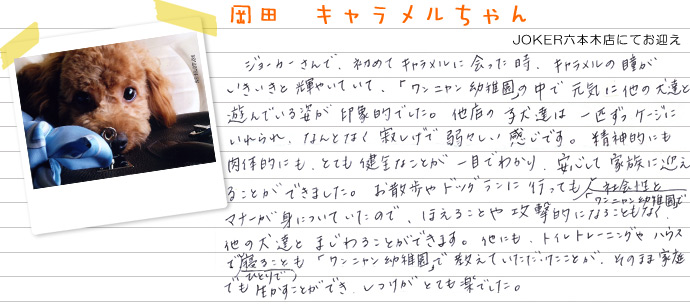 岡田 キャラメルちゃん
JOKER六本木店にてお迎え
ジョーカーさんで、初めてキャラメルに会った時、キャラメルの瞳が
いきいきと輝やいていて、「ワンニャン幼稚園」の中で元気に他の犬達と
遊んでいる姿が印象的でした。他店の子犬達は一匹ずつケージに
いれられ、なんとなく寂しげで弱々しい感じです。精神的にも
肉体的にも、とても健全なことが一目でわかり、安心して家族に迎え
ることができました。お散歩やドッグランに行っても、社会性と
「ワンニャン幼稚園」で
マナーが身についていたので、ほえることや攻撃的になることもなく、
他の犬達とまじわることができます。他にも、トイレトレーニングやハウス
で寝ることも「ワンニャン幼稚園」で教えていただいたことが、そのまま家庭
ひとりで
でも生かすことができ、しつけがとても楽でした。